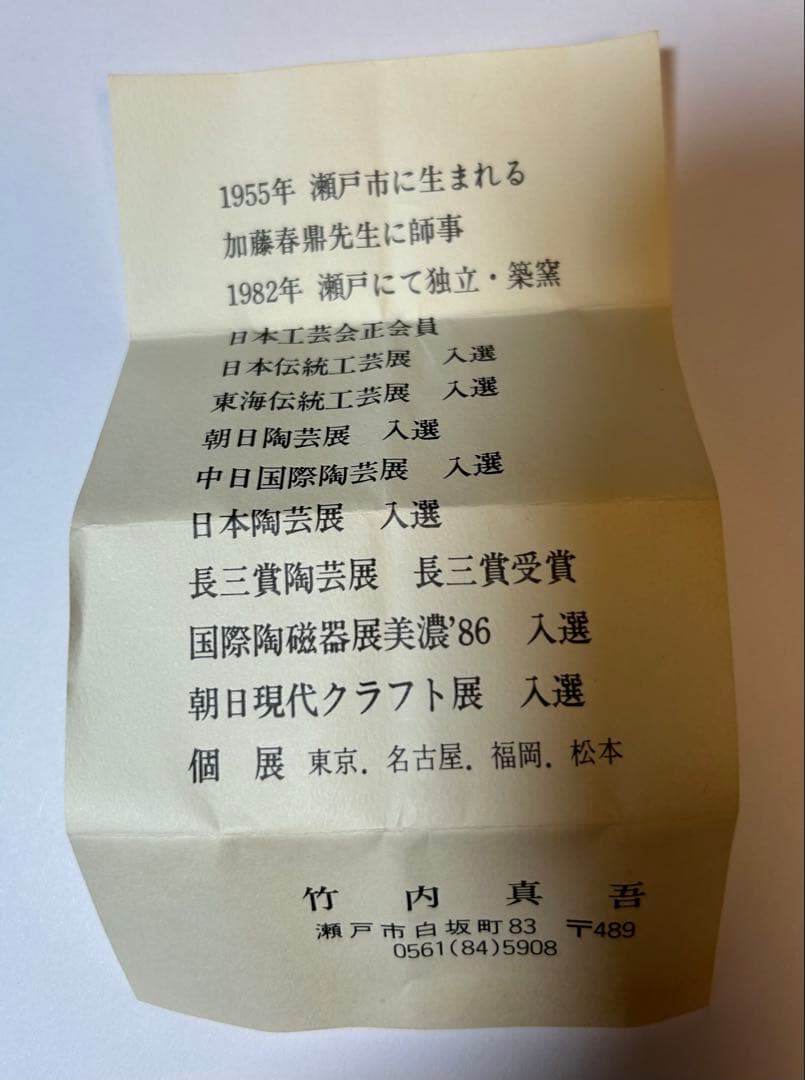 1955年 瀬戸市に生まれる
加藤春鼎先生に師事
1982年 瀬戸にて独立・築窯
日本工芸会正会員
日本伝統工芸展　入選
東海伝統工芸展　入選
朝日陶芸展　入選
中日国際陶芸展　入選
日本陶芸展　入選
長三賞陶芸展　長三賞受賞
国際陶磁器展美濃'86　入選
朝日現代クラフト展　入選
個　展　東京．名古屋．福岡．松本
竹　内　真　吾
瀬戸市白坂町83　〒489
0561(84)5908